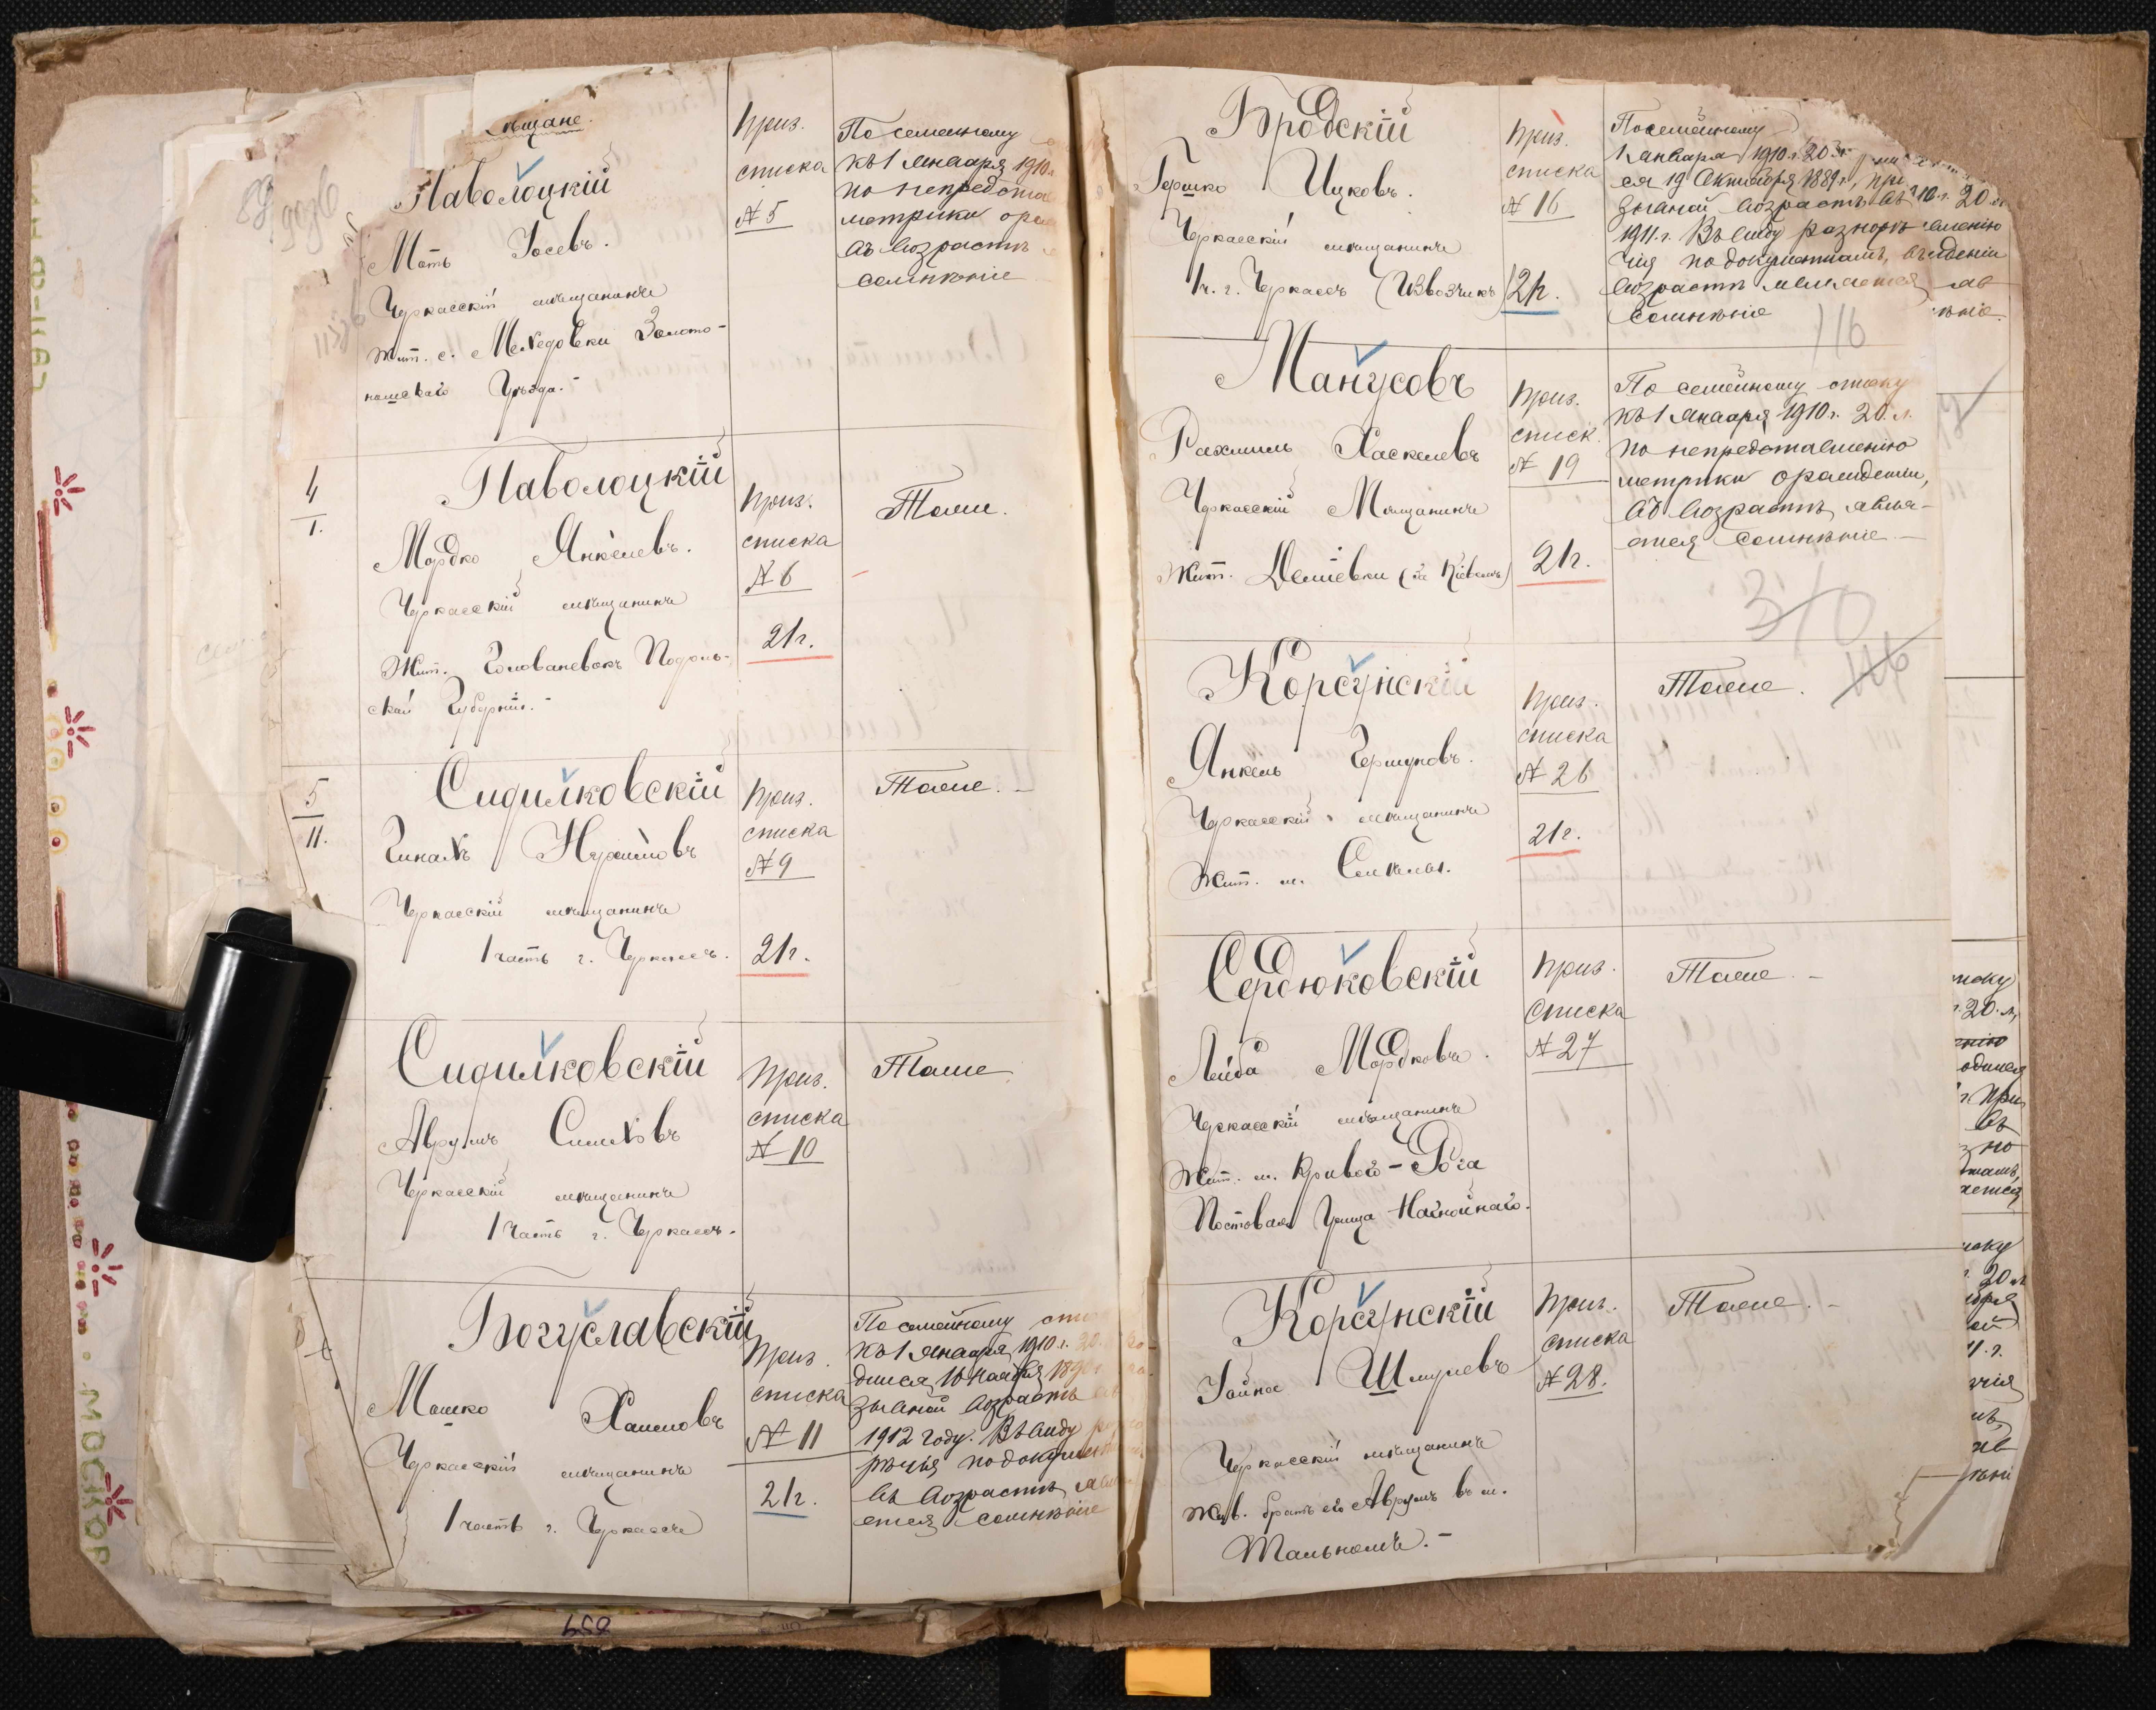 мѣщане.
Паволоцкій
Мать Іосевъ.
Черкасскій мѣщанинъ
жит. с. Мехедовки Золото-
ношскаго Уѣзда.-
Приз.
списка
№ 5
По семейному
къ 1 Января 1910 г.
по непредста
метрики
въ возрастѣ
сомнѣніе
4
1.
Паволоцкій
Мордко Янкелевъ.
Черкасскій мѣщанинъ
Жит. Голованевскъ Подоль-
ской Губерніи.-
Приз.
списка
№ 6
21 г.
Тоже.
5
11.
Сидилковскій
Чипахъ Нухимовъ
Черкасскій мѣщанинъ
1 часть г. Черкассъ.
Приз.
списка
№ 9
21 г.
Тоже.-
Сидилковскій
Аврумъ Симховъ
Черкасскій мѣщанинъ
1 часть г. Черкассъ.
Приз.
списка
№ 10
Тоже
Богуславскій
Мошко Хаимовъ
Черкасскій мѣщанинъ
1 часть г. Черкассъ
Приз.
списка
№ 11
21 г.
По семейному
къ 1 Января 1910 г. 20
дился 16 Ноября 189
зывной возрастъ
1912 году. Въ виду
рѣчія по докумен
въ возрастѣ явля
ется сомнѣніе
Бродскій
Гершко Ицковъ.
Черкасскій мѣщанинъ
1 ч. г. Черкассъ (Извозчикъ)
Приз.
списка
№ 16
21 г.
По семейному
1 Января 1910 г. 20
ся 19 Октября 1889 г., при
зывной возрастъ въ 1910 г. 20 л.
1911 г. Въ виду разнорѣ
чія по документамъ, въ
возрастѣ является
сомнѣніе
116
Манусовъ
Рахмиль Хаскелевъ
Черкасскій Мѣщанинъ
Жит. Деміевки (за Кіевомъ)
Приз.
списк.
№ 19
21 г.
По семейному списку
къ 1 Января 1910 г. 20 л.
по непредставленію
метрики
въ возрастѣ явля-
ется сомнѣніе.-
310
116
Корсунскій
Янкель Гершковъ.
Черкасскій мѣщанинъ
Жит. м. Смѣлы.
Приз.
списка
№ 26
21 г.
Тоже.
Сердюковскій
Лейба Мордковъ.
Черкасскій мѣщанинъ
Жит. м. Кривой-Рога
Постовая Улица
Приз.
списка
№ 27
Тоже.-
Корсунскій
Іойна Шмулевъ
Черкасскій мѣщанинъ
Жив. братъ его Аврумъ въ м.
Тальномъ.-
Приз.
списка
№ 28.
Тоже.-